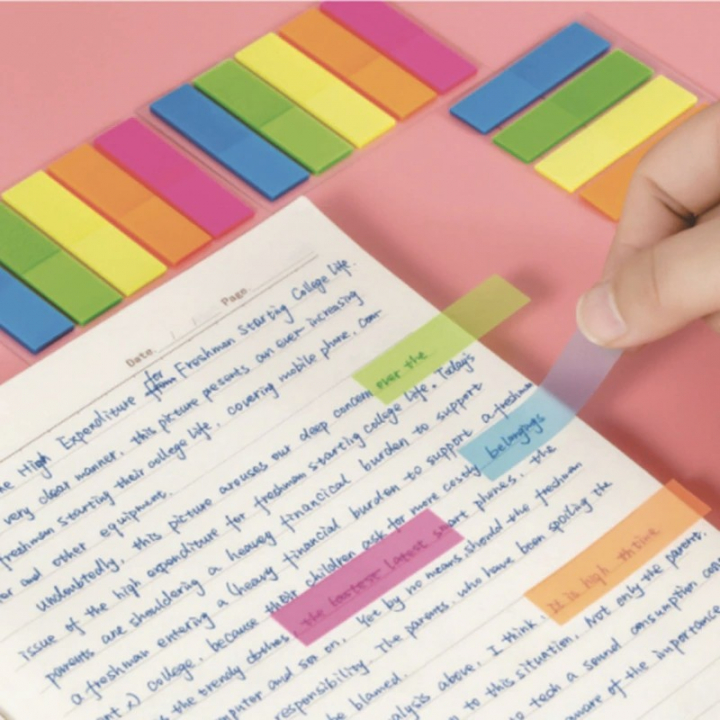 Date. / / Page.
he High Expenditure for Freshman Starting College Life.
very clear manner, this picture presents an ever increasing
freshman starting their college life, covering mobile phone, com
er and other equipment.
Undoubtedly, this picture arouses our deep concern over the
issue of the high expenditure for freshman starting college life. Today's
parents are shouldering a heavy financial burden to support
a freshman entering a (heavy financial burden to support a freshm
ent) college, because their children ask for more costly belongings
the trendy clothes, the lastest latest smart phones, the
mputer and so on. Yet by no means should the freshman
responsibility. The parents, who have been spoiling the
be blamed.
alysis above, I think, It is high thtime
to this situation. Not only the parent.
to tech a sound consumption con
aware of the importance